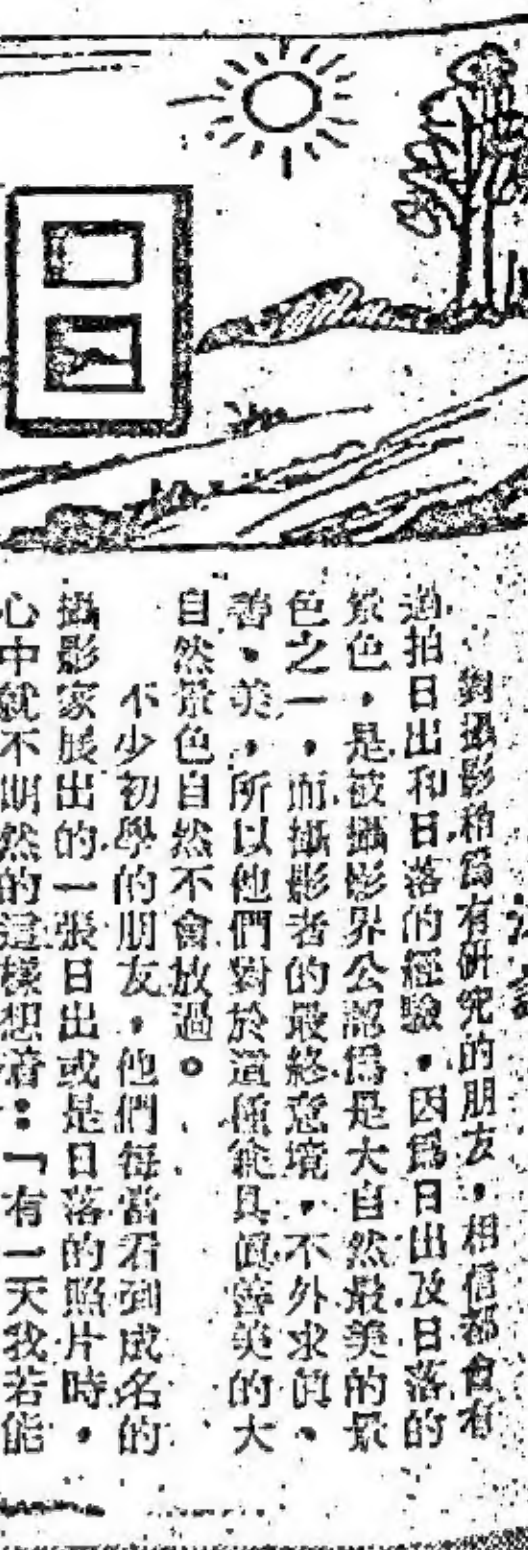 對攝影稍爲有研究的朋友，相信都會有
過拍日出和日落的經驗，因爲日出及日落的
景色，是被攝影界公認爲是大自然最美的景
色之一，而攝影者的最終意境，不外求眞、
善、美，所以他們對於這種能具眞善美的大
自然景色自然不會放過。
不少初學的朋友，他們每當看到成名的
攝影家展出的一張日出或是日落的照片時，
心中就不期然的這樣想着：「有一天我若能
日